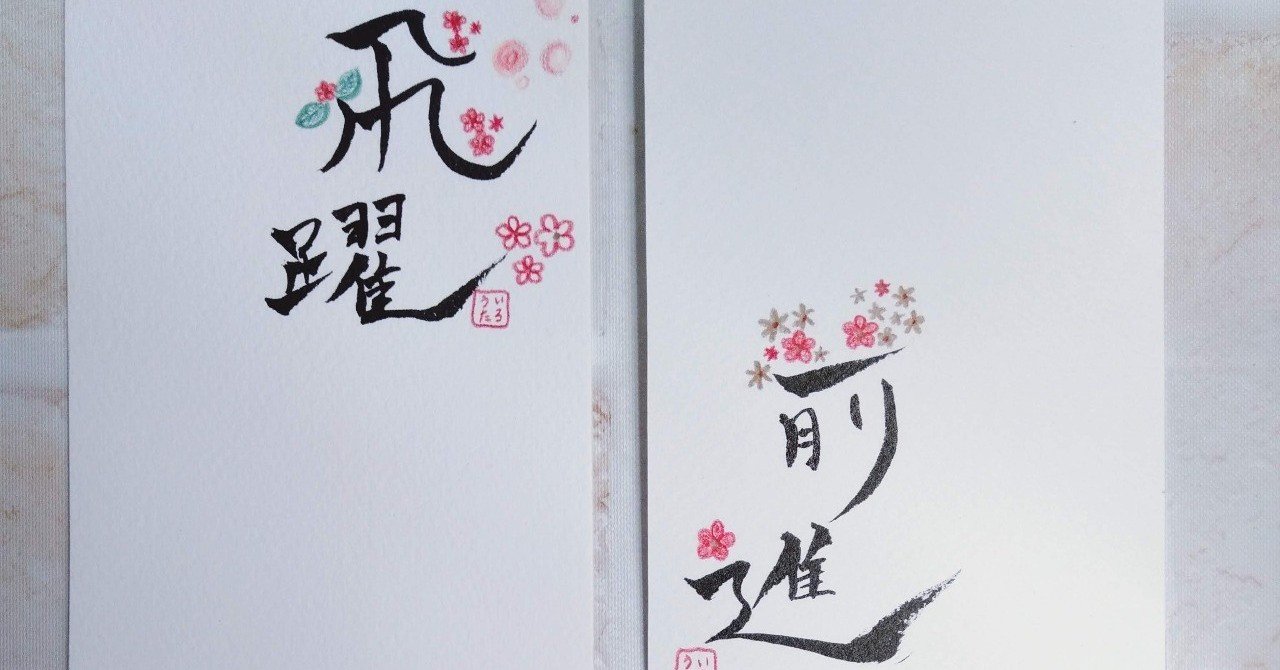 飛躍
いろ
うた
前進
い
う